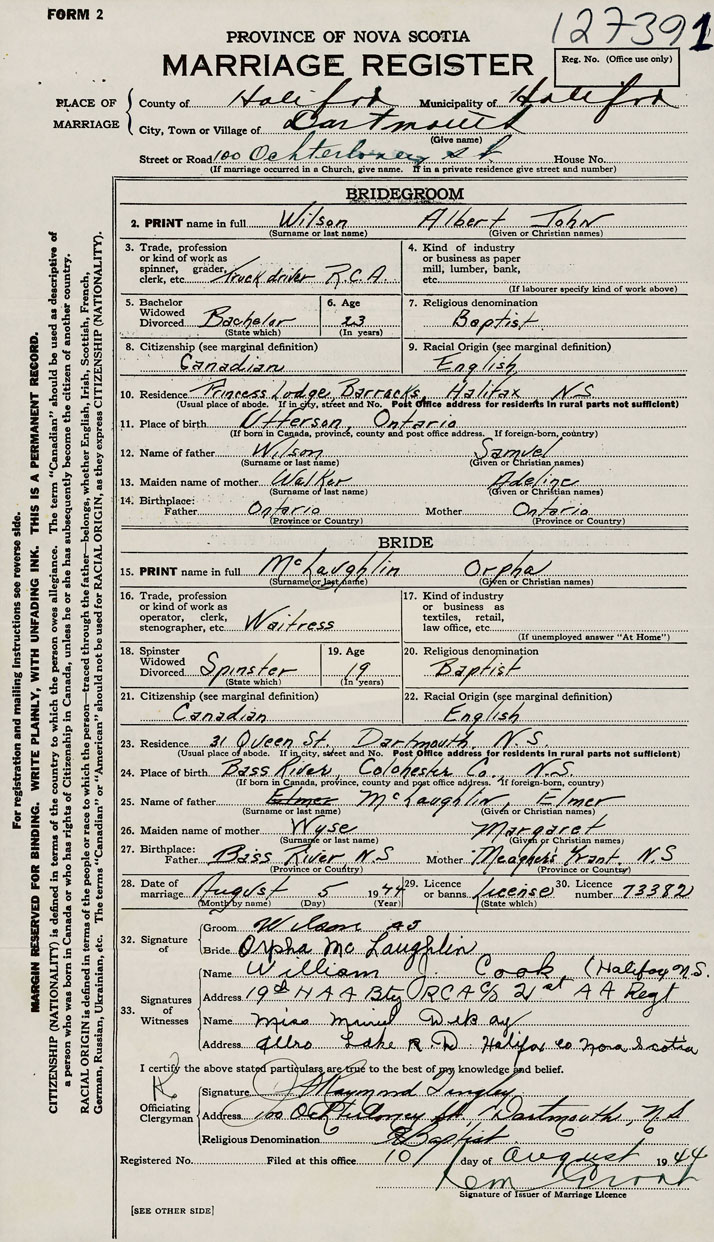 FORM 2
127391
PROVINCE OF NOVA SCOTIA
MARRIAGE REGISTER
Reg. No. (Office use only)
PLACE OF MARRIAGE
County of Halifax Municipality of Halifax
City, Town or Village of Dartmouth
(Give name)
Street or Road 100 Ochterloney St House No.
(If marriage occurred in a Church, give name. If in a private residence give street and number)
BRIDEGROOM
2. PRINT name in full Wilson Albert John
(Surname or last name) (Given or Christian names)
3. Trade, profession or kind of work as spinner, grader, clerk, etc. Truck driver R.C.A.
4. Kind of industry or business as paper mill, lumber, bank, etc.
(If labourer specify kind of work above)
5. Bachelor Widowed Divorced Bachelor (State which)
6. Age 23 (In years)
7. Religious denomination Baptist
8. Citizenship (see marginal definition) Canadian
9. Racial Origin (see marginal definition) English
10. Residence Princess Lodge, Barracks, Halifax N.S
(Usual place of abode. If in city, street and No. Post Office address for residents in rural parts not sufficient)
11. Place of birth Utterson, Ontario
(If born in Canada, province, county and post office address. If foreign-born, country)
12. Name of father Wilson Samuel
(Surname or last name) (Given or Christian names)
13. Maiden name of mother Walker Adeline
(Surname or last name) (Given or Christian names)
14. Birthplace: Father Ontario Mother Ontario
(Province or Country) (Province or Country)
BRIDE
15. PRINT name in full McLaughlin Orpha
(Surname or last name) (Given or Christian names)
16. Trade, profession or kind of work as operator, clerk, stenographer, etc. Waitress
17. Kind of industry or business as textiles, retail, law office, etc.
(If unemployed answer "At Home")
18. Spinster Widowed Divorced Spinster (State which)
19. Age 19 (In years)
20. Religious denomination Baptist
21. Citizenship (see marginal definition) Canadian
22. Racial Origin (see marginal definition) English
23. Residence 31 Queen St, Dartmouth, N.S.
(Usual place of abode. If in city, street and No. Post Office address for residents in rural parts not sufficient)
24. Place of birth Bass River, Colchester Co., N.S.
(If born in Canada, province, county and post office address. If foreign-born, country)
25. Name of father Elmer McLaughlin, Elmer
(Surname or last name) (Given or Christian names)
26. Maiden name of mother Wyse Margaret
(Surname or last name) (Given or Christian names)
27. Birthplace: Father Bass River N.S Mother Meagher's Grant, N.S
(Province or Country) (Province or Country)
28. Date of marriage August 5 1944 29. Licence or banns License 30. Licence number 73382
(Month by name) (Day) (Year) (State which)
32. Signature of
Groom Wilson AJ
Bride Orpha McLaughlin
33. Signatures of Witnesses
Name William J. Cook, (Halifax N.S.
Address 19th H A A Bty RCA c/o 21st A A Regt
Name Miss
Address Lake R.D. Halifax Co Nova Scotia
I certify the above stated particulars are true to the best of my knowledge and belief.
Officiating Clergyman
Signature Maymond Tingley
Address 100 Ochterloney St, Dartmouth, N.S
Religious Denomination Baptist
Registered No. Filed at this office 10 day of August 1944
Signature of Issuer of Marriage Licence
[SEE OTHER SIDE]
For registration and mailing instructions see reverse side.
MARGIN RESERVED FOR BINDING. WRITE PLAINLY, WITH UNFADING INK. THIS IS A PERMANENT RECORD.
CITIZENSHIP (NATIONALITY) is defined in terms of the country to which the person owes allegiance. The term "Canadian" should be used as descriptive of
a person who was born in Canada or who has rights of Citizenship in Canada, unless he or she has subsequently become the citizen of another country.
RACIAL ORIGIN is defined in terms of the people or race to which the person—traced through the father—belongs, whether English, Irish, Scottish, French,
German, Russian, Ukrainian, etc. The terms "Canadian" or "American" should not be used for RACIAL ORIGIN, as they express CITIZENSHIP (NATIONALITY).